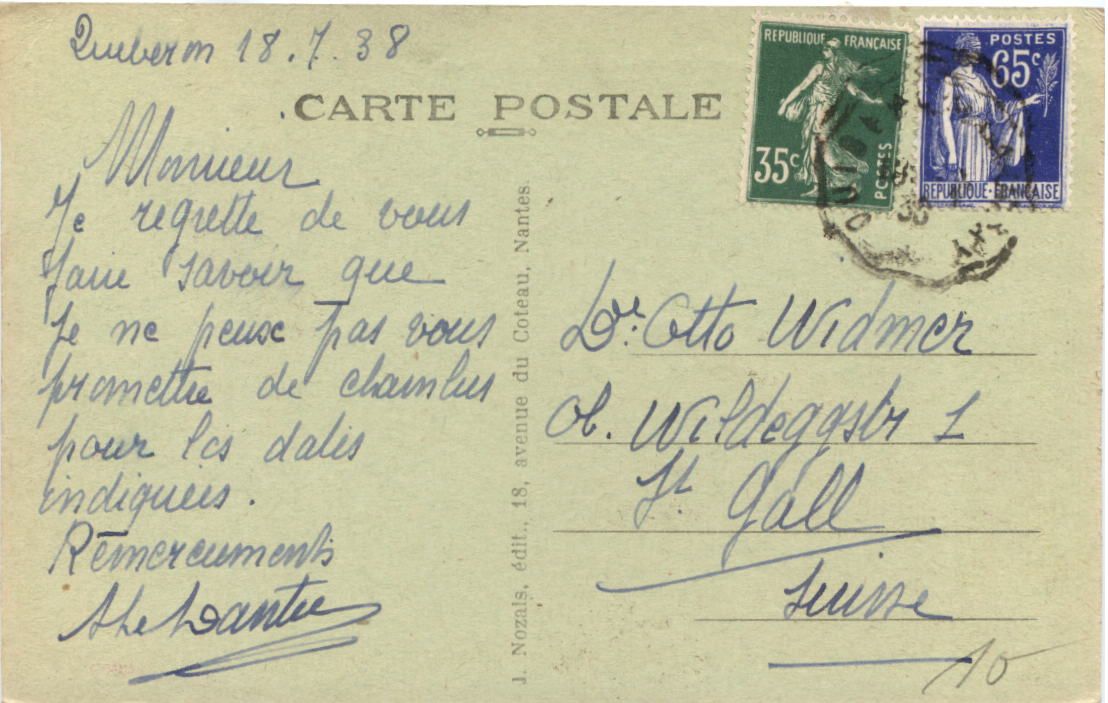 Quiberon 18.7.38
CARTE POSTALE
Monsieur
Je regrette de vous
faire savoir que
je ne peux pas vous
promettre de chambres
pour les dates
indiquées.
Remerciements
REPUBLIQUE FRANÇAISE
35c
POSTES
POSTES
65c
REPUBLIQUE·FRANÇAISE
J. Nozais, édit., 18, avenue du Coteau, Nantes.
Dr. Otto Widmer
ob. Wildeggstr 1
St. Gall
Suisse
10